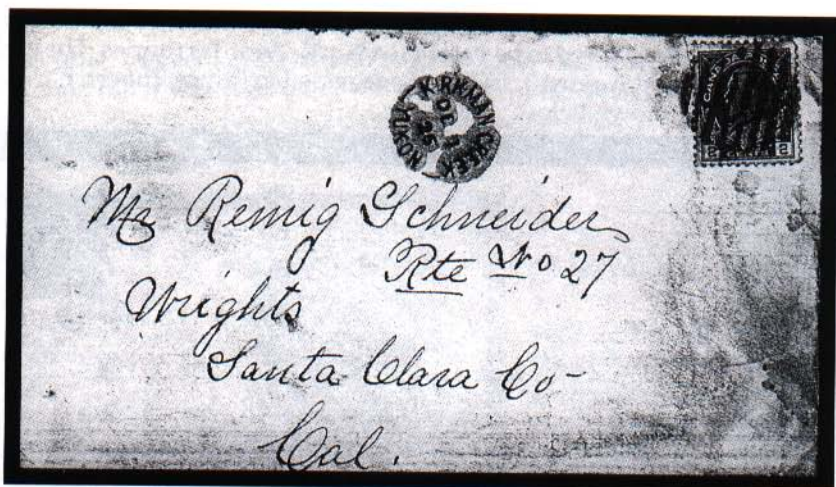 KIRKMAN CREEK
25
YUKON
CANADA
2 2
Mr Remig Schneider
Rte No 27
Wrights
Santa Clara Co-
Cal.